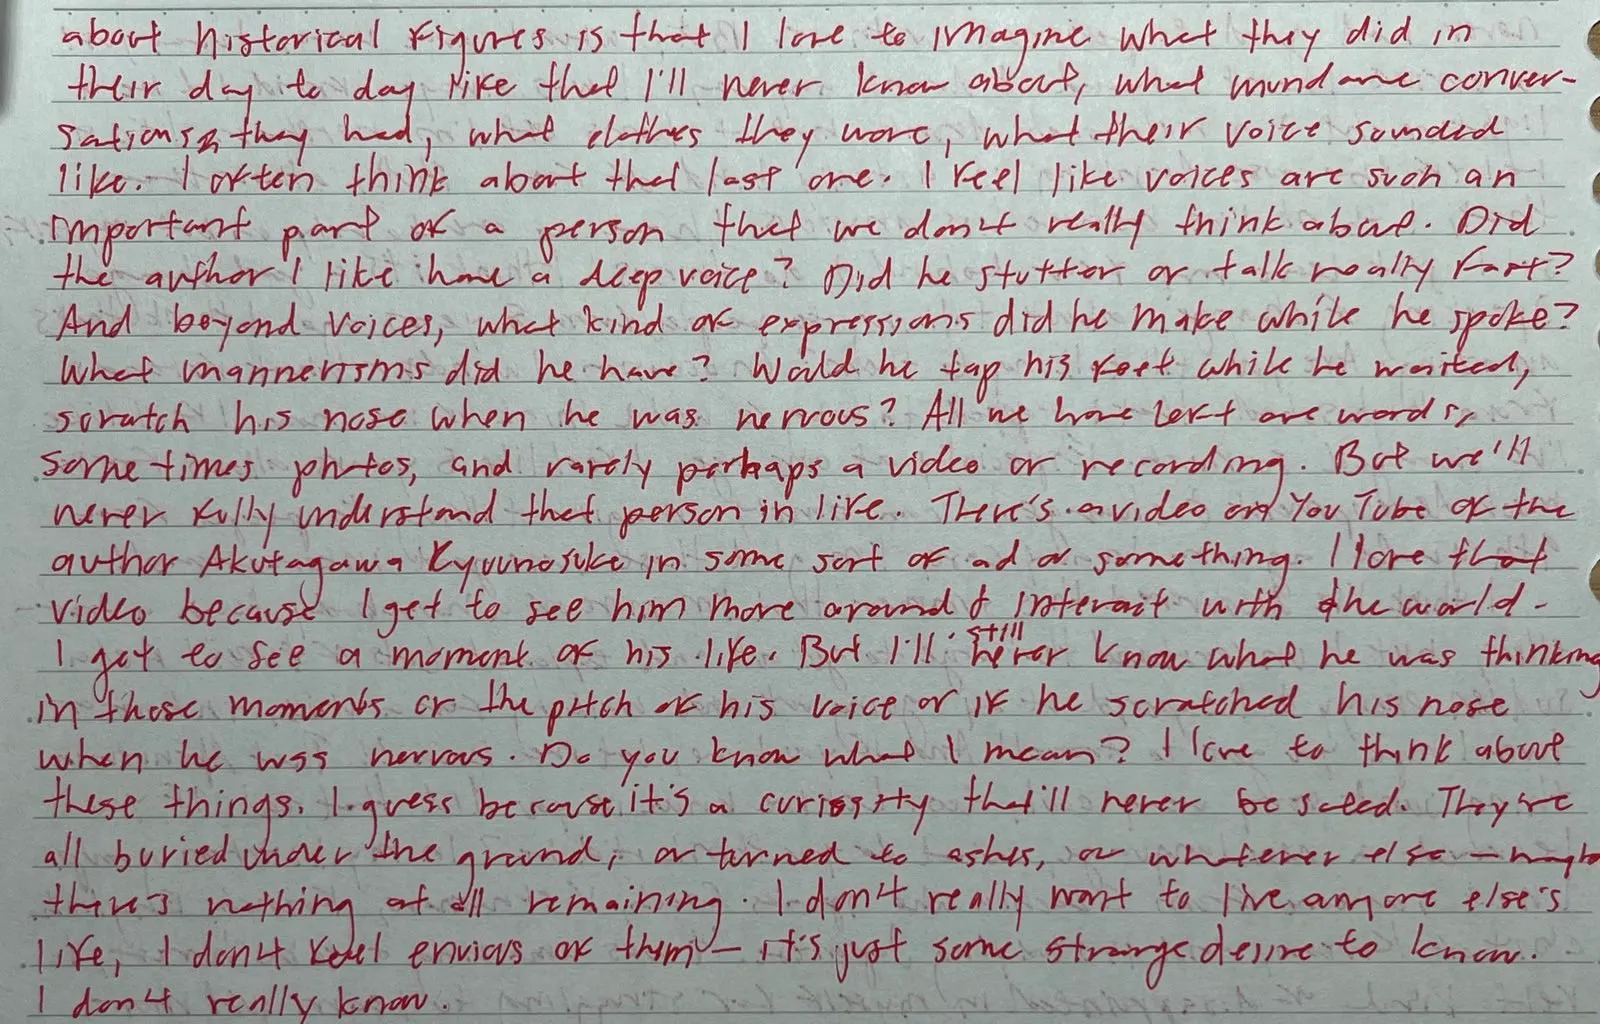 about historical figures is that I love to imagine what they did in
their day to day life that I'll never know about, what mundane conver-
sations they had, what clothes they wore, what their voice sounded
like. I often think about that last one. I feel like voices are such an
important part of a person that we don't really think about. Did
the author I like have a deep voice? Did he stutter or talk really fast?
And beyond voices, what kind of expressions did he make while he spoke?
What mannerisms did he have? Would he tap his feet while he waited,
scratch his nose when he was nervous? All we have left are words,
sometimes photos, and rarely perhaps a video or recording. But we'll
never fully understand that person in life. There's a video on YouTube of the
author Akutagawa Ryuunosuke in some sort of ad or something. I love that
video because I get to see him move around & interact with the world.
I get to see a moment of his life. But I'll still never know what he was thinking
in those moments or the pitch of his voice or if he scratched his nose
when he was nervous. Do you know what I mean? I love to think about
these things. I guess because it's a curiosity that'll never be sated. They're
all buried under the ground, or turned to ashes, or whatever else – maybe
there's nothing at all remaining. I don't really want to live anyone else's
life, I don't feel envious of them – it's just some strange desire to know.
I don't really know.